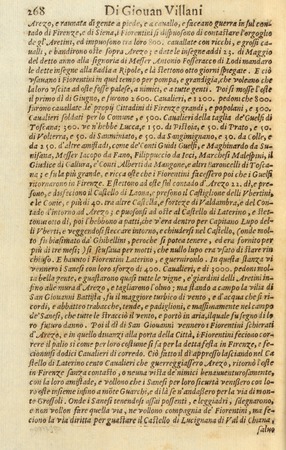 268 Di Giouan Villani
Arezo, e raunata di gente a piede, e a cauallo, e faceano guerra in sul conì
tado di Firenze, e di Siena, i Fiorentini si disposono di contastare l'orgoglio
de gl'Aretini, ed impuosono tra loro 800. cauallate con ricchi, e grossi ca-
ualli, e bandirono oste sopra Arezo; e date le insegne addi 23. di Maggio
del detto anno alla signoria di Messer Antonio Fosseracco di Lodi mandaro
le dette insegne alla badia a Ripole, e là stettono otto giorni spiegate. E ciò
usauano i Fiorentini in quel tempo per pompa, e grandigia, che voleano che
la loro vscita ad oste fosse palese, a nimici, e a tutte genti. Poi si mosse l'oste
il primo dì di Giugno, e furono 2600. Caualieri, e 12000. pedoni che 800.
furono cauallate de proprij Cittadini di Firenze grandi, e popolani, e 300.
Caualieri soldati per lo Comune, e 500. Caualieri della taglia de' Guelfi di
Toscana; 300. ve n'hebbe Lucca, e 150. di Pistoia, e 50. di Prato, e 50.
di Volterra, e 50. di Samminiato, e 50. di Sangimignano, e 30. da Colle, e
da 250. d'altre amistadi, come de' Conti Guidi Guelfi, e Maghinardo da Su-
sinana, Messer Iacopo da Fano, Filippuccio da Ieci, Marchesi Malespini, il
Giudice di Callura, e' Conti Alberti da Mangone, e altri baronelli di Tosca-
na; e fu la più grande, e ricca oste che i Fiorentini facessero poi che i Guelfi
ritornarono in Firenze. E stettono ad oste sul contado d'Arezo 22. dì, pre-
sono, e disfeciono il Castello di Leona, presono il Castiglione delli Vbertini,
e le Conie, e più di 40. tra altre Castella, e fortezze di Valdambra, e del Con-
tado d'intorno ad Arezo; e puosonsi ad oste al Castello di Laterino, e stet-
tonuì otto dì, poi l'hebbono a patti, che v'era dentro per Capitano Lupo del-
li Vberti, e veggendosi steccare intorno, e chiudersi nel Castello, fonde mol-
to fu biasimato da' Ghibellini, perochè si potea tenere, ed era fornito per
più di tre mesi. Ma si scusaua per motti, che nullo lupo era vsato di stare rin-
chiuso. E hauuto i Fiorentini Laterino, e guernironlo. In questa stanza vi
vennero i Sanesi con loro sforzo di 400. Caualieri, e di 3000. pedoni mol-
ta bella gente, e guastaro quasi tutte le vigne, e giardini delli Aretini infi-
no alle mura d'Arezo, e tagliarono l'olmo; ma stando a campo la vilia di
San Giouanni Battista, fu il maggiore turbico di vento, e d'acqua che si ri-
cordi, e abbatteo trabacche, tende, e padiglioni, e massimamente nel campo
de' Sanesi, che tutte le stracciò il vento, e portò in aria, ilquale fu segno di lo-
ro futuro danno. Poi il dì di San Giouanni vennero i Fiorentini schierati
d'Arezo, e in quello dinanzi alla porta della Città, i Fiorentini feciono cor-
rere il palio sì come per loro costume si fa per la detta festa in Firenze, e fe-
cionui dodici Caualieri di corredo. Ciò fatto il dì appresso lasciando nel Ca-
stello di Laterino cento Caualieri che guerreggiassero Arezo, ritornò l'oste
in Firenze sanza contasto, o nenna vista de nimici benauenturosamente,
con la loro amistade, e volleno i Sanesi per loro sicurtà venissero con lo-
ro oste insieme infino a Monte Guarchi, e di là se n'andassero per la via di mon-
te Grossoli. Onde i Sanesi tenendosi assai possenti, e leggiadri, sdegnarono,
e non vollon fare quella via, ne vollono compagnia de' Fiorentini, ma fe-
ciono la via diritta per guastare il Castello di Lucignana di Val di Chiana,
saluo